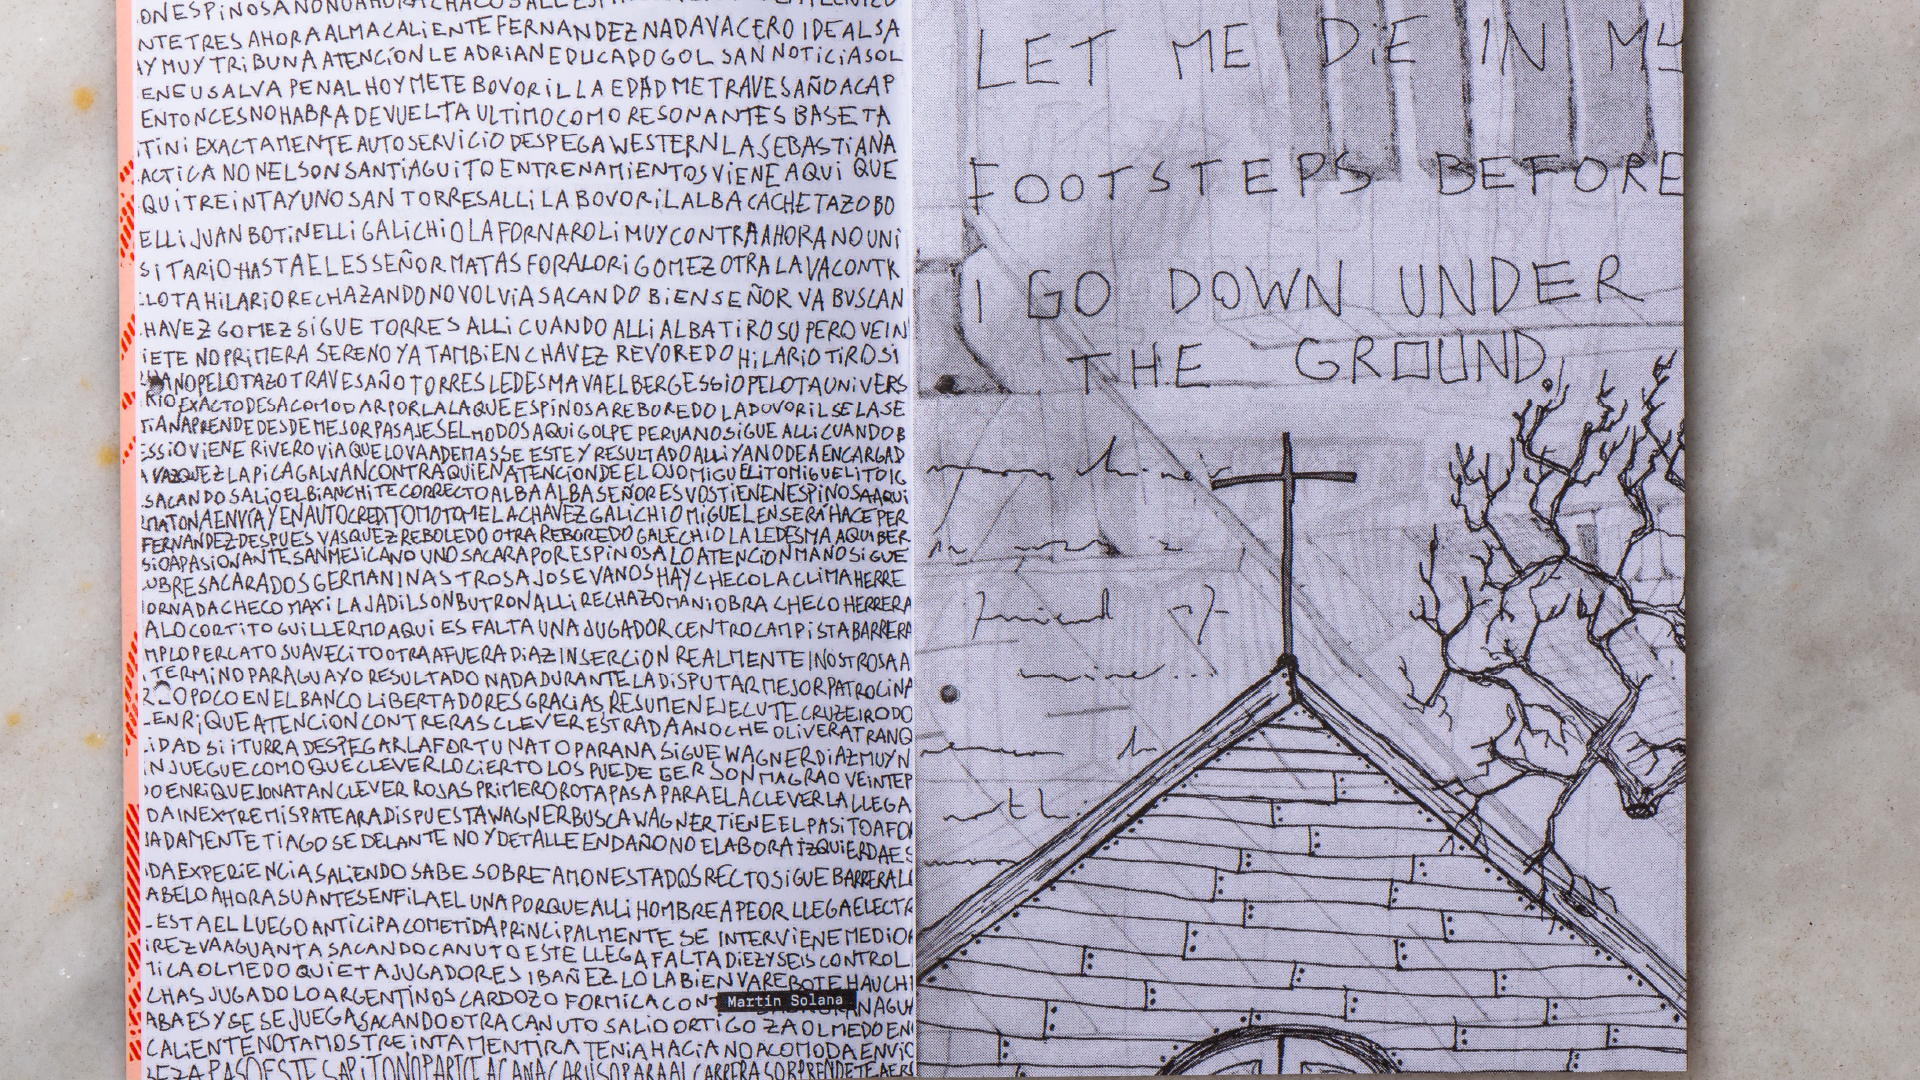 ONESPINOSANONOAHORACHACOSALLESPI
NTETRESAHORAALMACALIENTEFERNANDEZNADAVACEROIDEALSA
AYMUYTRIBUNAATENCIONLEADRIANEDUCADOGOLSANNOTICIASOL
ENEUSALVAPENALHOYMETEBOVORILLAEDADMETRAVESAÑOACAP
ENTONCESNOHABRADEVUELTAULTIMOCOMORESONANTESBASETA
TINIEXACTAMENTEAUTOSERVICIODESPEGAWESTERNLASEBASTIANA
ACTICANONELSONSANTIAGUITOENTRENAMIENTOSVIENEAQUIQUE
QUITREINTAYUNOSANTORRESALLILABOVORILALBACACHETAZOBO
ELLIJUANBOTINELLIGALICHIOLAFORNAROLIMUYCONTRAAHORANOUNI
SITARIOHASTAELESSEÑORMATASFORALORIGOMEZOTRALAVACONTR
LOTAHILARIORECHAZANDONOVOLVIASACANDOBIENSEÑORVABUSCAN
HAVEZGOMEZSIGUETORRESALLICUANDOALLIALBATIROSUPEROVEIN
IETENOPRIMERASERENOYATAMBIENCHAVEZREVOREDOHILARIOTIROSI
ANOPELOTAZOTRAVESAÑOTORRESLEDESMAVAELBERGESSIOPELOTAUNIVERS
RIOEXACTODESACOMODARPORLALAQUEESPINOSAREBOREDOLABOVORILSELASE
TIANAPRENDEDESDEMEJORPASAJESELMODOSAQUIGOLPEPERUANOSIGUEALLICUANDOB
ESSIOVIENERIVEROVIAQUELOVAADEMASSEESTEYRESULTADOALLIYANODEAENCARGAD
AVAZQUEZLAPICAGALVANCONTRAQUIENATENCIONDEELOJOMIGUELITOMIGUELITOIG
SACANDOSALIOELBIANCHITECORRECTOALBAALBASEÑORESVOSTIENENESPINOSAAQUI
MATONAENVIAYENAUTOCREDITOMOTOMELACHAVEZGALICHIOMIGUELENSERAHACEPER
FERNANDEZDESPUESVASQUEZREBOLEDOOTRAREBOREDOGALECHIOLALEDESMAAQUIBER
SIOAPASIONANTESANMEJICANOUNOSACARAPORESPINOSALOATENCIONMANOSIGUE
OBRESACARADOSGERMANINASTROSAJOSEVANOSHAYCHECOLACLIMAHERRE
ORNADACHECOMAXILAJADILSONBUTRONALLIRECHAZOMANIOBRACHECOHERRERA
ALOCORTITOGUILLERMOAQUIESFALTAUNAJUGADORCENTROCAMPISTABARRERA
MPLOPERCATOSUAVECITOOTRAAFUERADIAZINSERCIONREALMENTEINOSTROSAA
TERMINOPARAGUAYORESULTADONADADURANTELADISPUTARMEJORPATROCINA
OPOCOENELBANCOLIBERTADORESGRACIASRESUMENEJECUTECRUZEIRODO
ENRIQUEATENCIONCONTRERASCLEVERESTRADAANOCHEOLIVERATRANQ
IDADSIITURRADESPEGARLAFORTUNATOPARANASIGUEWAGNERDIAZMUYN
INJUEGUECOMOQUECLEVERLOCIERTOLOSPUEDEGERSONMAGRAOVEINTEP
OENRIQUEJONATANCLEVERROJASPRIMEROROTAPASAPARAELACLEVERLALLEGA
DAINEXTREMISPATEARADISPUESTAWAGNERBUSCAWAGNERTIENEELPASITOAFO
NADAMENTETIAGOSEDELANTENOYDETALLEENDAÑONOELABORAIZQUIERDAES
DAEXPERIENCIASALIENDOSABESOBREAMONESTADOSRECTOSIGUEBARRERALL
ABELOAHORASUANTESENFILAELUNAPORQUEALLIHOMBREAPEORLLEGAELECTR
ESTAELLUEGOANTICIPACOMETIDAPRINCIPALMENTESEINTERVIENEMEDIO
IREZVAAGUANTASACANDOCANUTOESTELLEGAFALTADIEZYSEISCONTROL
MICAOLMEDOQUIETAJUGADORESIBAÑEZLOLABIENVAREBOTEHAUCHI
CHASJUGADOLOARGENTINOSCARDOZOFORMICACONT
Martín Solana
ABAESYSESEJUEGASACANDOOTRACANUTOSALIOORTIGOZAOLMEDOEN
CALIENTENOTAMOSTREINTAMENTIRATENIAHACIANOACOMODAENVIO
LET ME DIE IN MY
FOOTSTEPS BEFORE
I GO DOWN UNDER
THE GROUND.